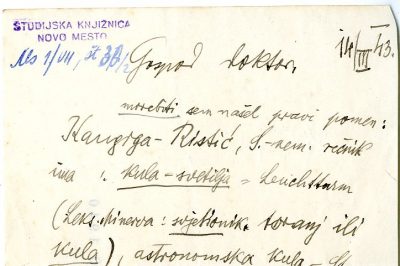 ŠTUDIJSKA KNJIŽNICA
NOVO MESTO
Ms 1/VII, št 38/2
14/III 43.
Gospod doktor,
morebiti sem našel pravi pomen:
Kangrga-Ristić, S.-nem. rečnik
ima: kula-svetilja = Leuchtturm
(Leks. Minerva: svjetionik, toranj ili
kula), astronomska kula-